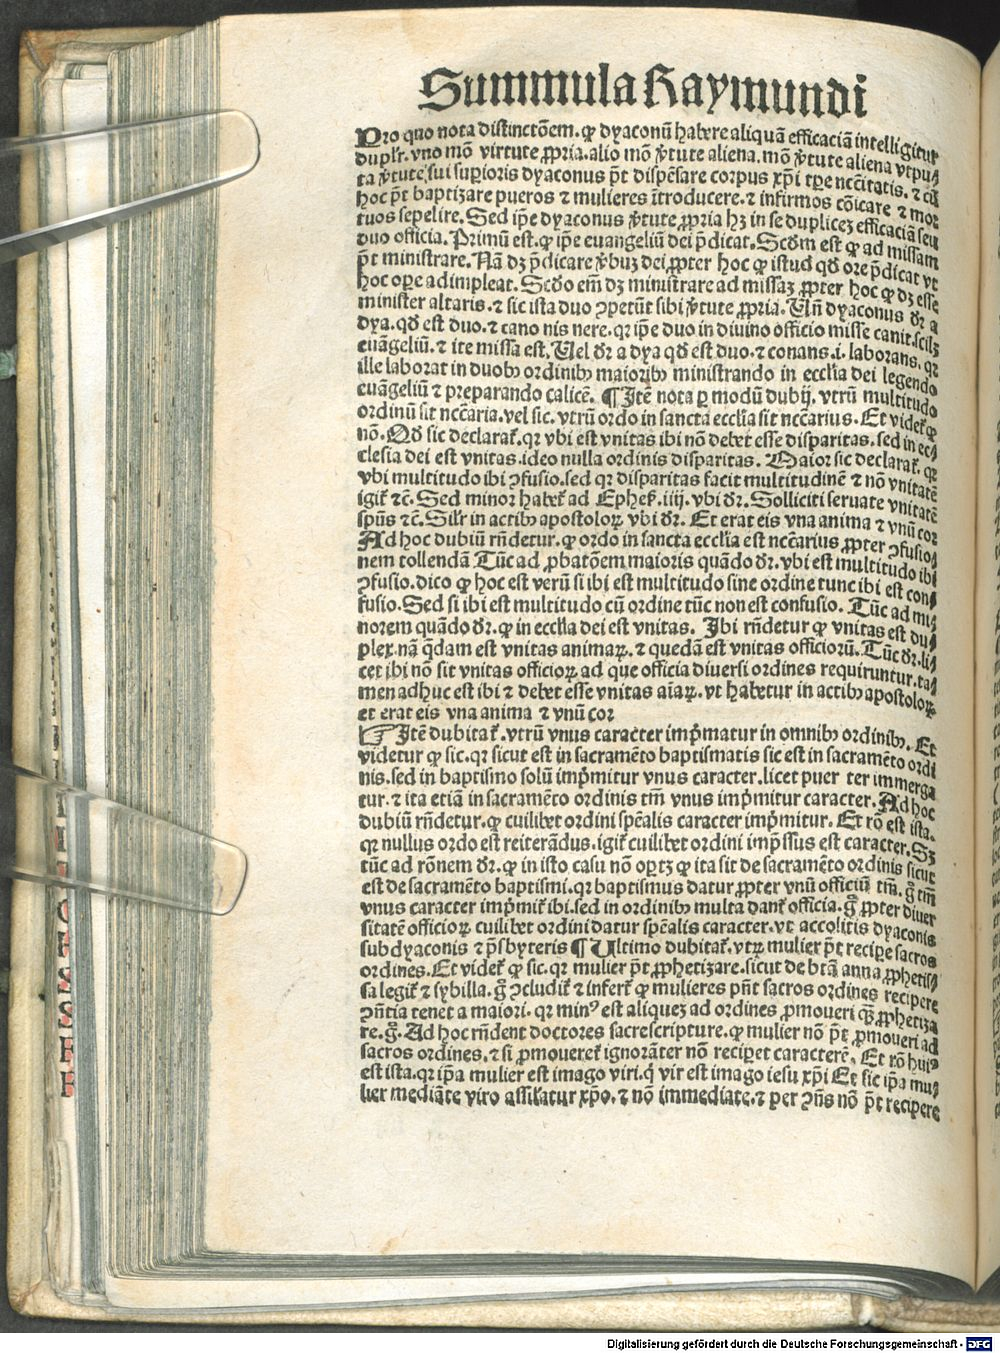 Summula Raymundi
Pro quo nota distinctōem. ꝙ dyaconū habere aliquā efficaciā intelligitur
duplr̄. vno mō virtute ꝓpria. alio mō v̓tute aliena. mō v̓tute aliena vtpu⸗
ta v̓tute sui suꝑioris dyaconus p̄t dispēsare corpus xp̄i tꝑe nccītatis. ⁊ cū
hoc p̄t baptizare pueros ⁊ mulieres ītroducere. ⁊ infirmos cōicare ⁊ mor
tuos sepelire. Sed ip̄e dyaconus v̓tute ꝓpria hꝫ in se dupliceꝫ efficaciā seu
duo officia. Primū est. ꝙ ip̄e euangeliū dei p̄dicat. Scd̄m est ꝙ ad missam
p̄t ministrare. Nā dꝫ p̄dicare v̓buꝫ dei ꝓpter hoc ꝙ istud qd̄ ore p̄dicat vt
hoc oꝑe adimpleat. Scd̄o em̄ dꝫ ministrare ad missaꝫ ꝓpter hoc ꝙ dꝫ esse
minister altaris. ⁊ sic ista duo ↄpetūt sibi v̓tute ꝓpria. Un̄ dyaconus dr̄ a
dya. qd̄ est duo. ⁊ cano nis nere. qꝛ ip̄e duo in diuino officio misse canit. scilꝫ
euāgeliū. ⁊ ite missa est. Uel dr̄ a dya qd̄ est duo. ⁊ conans. i. laborans. qꝛ
ille laborat in duobꝰ ordinibꝰ maioribꝰ ministrando in ecclīa dei legendo
euāgeliū ⁊ preparando calicē. ¶ Itē nota ꝑ modū dubij. vtrū multitudo
ordinū sit nccāria. vel sic. vtrū ordo in sancta ecclīa sit nccārius. Et videt̄ ꝙ
nō. Qd̄ sic declarat̄. qꝛ vbi est vnitas ibi nō debet esse disparitas. sed in ec⸗
clesia dei est vnitas. ideo nulla ordinis disparitas. Maior sic declarat̄. qꝛ
vbi multitudo ibi ↄfusio. sed qꝛ disparitas facit multitudinē ⁊ nō vnitatē
igit̄ ⁊c̄. Sed minor habet̄ ad Epheß. iiij. vbi dr̄. Solliciti seruate vnitatē
spūs ⁊c̄. Silr̄ in actibꝰ apostoloꝝ vbi dr̄. Et erat eis vna anima ⁊ vnū cor
Ad hoc dubiū rn̄detur. ꝙ ordo in sancta ecclīa est nccārius ꝓpter ↄfusio⸗
nem tollendā Tūc ad ꝓbatōem maioris quādo dr̄. vbi est multitudo ibi
ↄfusio. dico ꝙ hoc est verū si ibi est multitudo sine ordine tunc ibi est con⸗
fusio. Sed si ibi est multitudo cū ordine tūc non est confusio. Tūc ad mi⸗
norem quādo dr̄. ꝙ in ecclīa dei est vnitas. Ibi rn̄detur ꝙ vnitas est du⸗
plex. nā q̄dam est vnitas animaꝝ. ⁊ quedā est vnitas officiorū. Tūc dr̄. li⸗
cet ibi nō sit vnitas officioꝝ ad que officia diuersi ordines requiruntur. ta⸗
men adhuc est ibi ⁊ debet esse vnitas aīaꝝ. vt habetur in actibꝰ apostoloꝝ
et erat eis vna anima ⁊ vnū cor
☞ Itē dubitat̄. vtrū vnus caracter imp̄matur in omnibꝰ ordinibꝰ. Et
videtur ꝙ sic. qꝛ sicut est in sacramēto baptismatis sic est in sacramēto ordi
nis. sed in baptismo solū imp̄mitur vnus caracter. licet puer ter immerga
tur. ⁊ ita etiā in sacramēto ordinis tm̄ vnus imp̄mitur caracter. Ad hoc
dubiū rn̄detur. ꝙ cuilibet ordini spēalis caracter imp̄mitur. Et rō est ista.
qꝛ nullus ordo est reiterādus. igit̄ cuilibet ordini imp̄ssus est caracter. Sꝫ
tūc ad rōnem dr̄. ꝙ in isto casu nō oꝑtꝫ ꝙ ita sit de sacramēto ordinis sicut
est de sacramēto baptismi. qꝛ baptismus datur ꝓpter vnū officiū tm̄. g̊ tm̄
vnus caracter imp̄mit̄ ibi. sed in ordinibꝰ multa dant̄ officia. g̊ ꝓpter diuer
sitatē officioꝝ cuilibet ordini datur spēalis caracter. vt accolitis dyaconis
subdyaconis ⁊ p̄sbyteris ¶ Ultimo dubitat̄. vtꝝ mulier p̄t reciꝑe sacros
ordines. Et videt̄ ꝙ sic. qꝛ mulier p̄t ꝓphetizare. sicut de btā anna ꝓphetis⸗
sa legit̄ ⁊ sybilla. g̊ ↄcludit̄ ⁊ infert̄ ꝙ mulieres pn̄t sacros ordines recipere
ↄn̄tia tenet a maiori. qꝛ minꝰ est aliqueꝫ ad ordines ꝓmoueri qꝫ ꝓphetiza
re. g̊. Ad hoc rn̄dent doctores sacrescripture. ꝙ mulier nō p̄t ꝓmoueri ad
sacros ordines. ⁊ si ꝓmoueret̄ ignorāter nō reciꝑet caracterē. Et rō huiꝰ
est ista. qꝛ ip̄a mulier est imago viri. q̓ vir est imago iesu xp̄i Et sic ip̄a mu⸗
lier mediāte viro assilatur xp̄o. ⁊ nō immediate. ⁊ per ↄn̄s nō p̄t recipere
Digitalisierung gefördert durch die Deutsche Forschungsgemeinschaft - DFG